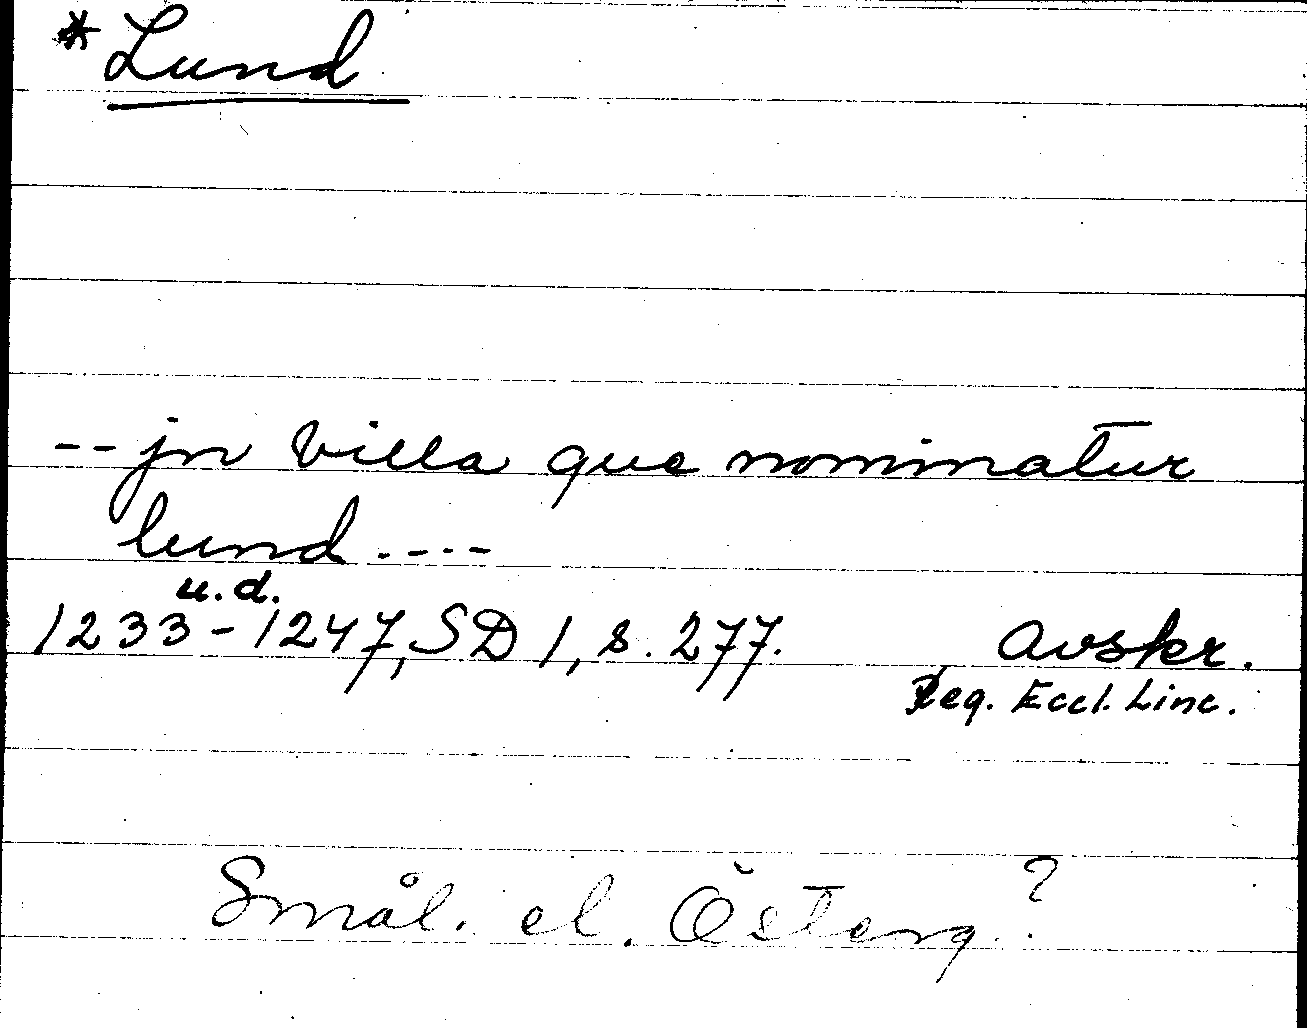 *Lund
-- jn villa que nominatur
lund ----
u.d.
1233-1247, SD 1, s. 277. Avskr.
Reg. Eccl. Linc.
Smål. el. Österg. ?